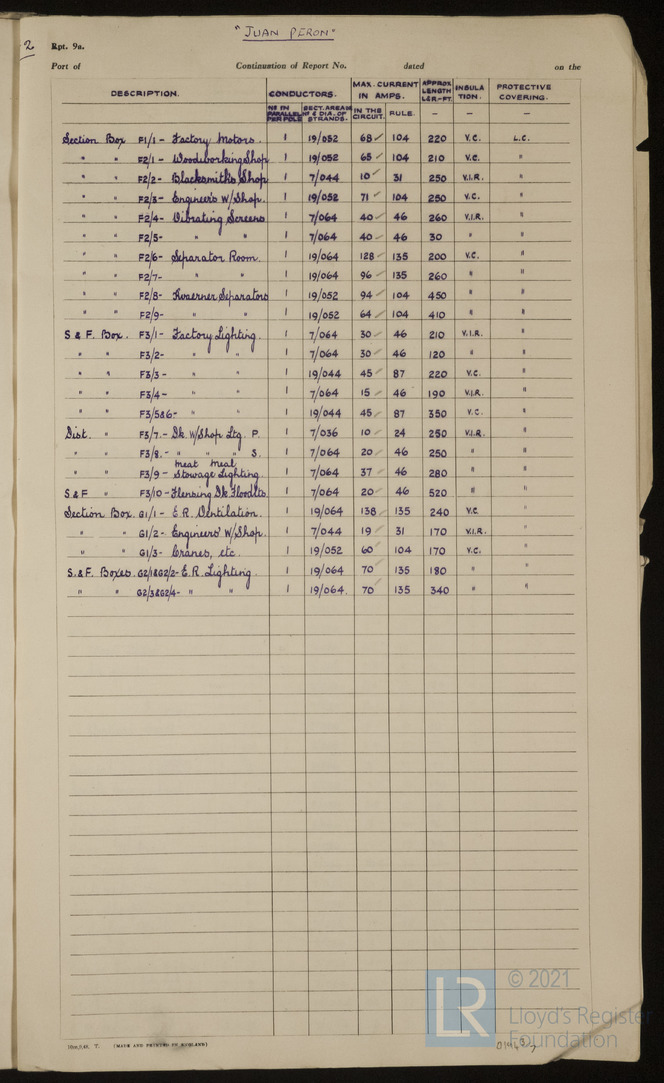 "JUAN PERON"
2
Rpt. 9a.
Port of Continuation of Report No. dated on the
DESCRIPTION. CONDUCTORS. MAX. CURRENT IN AMPS. APPROX LENGTH L&R-FT. INSULATION. PROTECTIVE COVERING.
Nº IN PARALLEL PER POLE SECT. AREA or Nº & DIA. OF STRANDS. IN THE CIRCUIT. RULE. — — —
Section Box F1/1 - Factory Motors. 1 19/052 68 ✓ 104 220 V.C. L.C.
" " F2/1 - Woodworking Shop 1 19/052 65 ✓ 104 210 V.C. "
" " F2/2 - Blacksmith's Shop 1 7/044 10 ✓ 31 250 V.I.R. "
" " F2/3 - Engineer's W/Shop. 1 19/052 71 ✓ 104 250 V.C. "
" " F2/4 - Vibrating Screens 1 7/064 40 ✓ 46 260 V.I.R. "
" " F2/5 - " " 1 7/064 40 ✓ 46 30 " "
" " F2/6 - Separator Room. 1 19/064 128 ✓ 135 200 V.C. "
" " F2/7 - " " 1 19/064 96 ✓ 135 260 " "
" " F2/8 - Kvaerner Separators 1 19/052 94 ✓ 104 450 " "
" " F2/9 - " " 1 19/052 64 ✓ 104 410 " "
S & F. Box. F3/1 - Factory Lighting. 1 7/064 30 ✓ 46 210 V.I.R. "
" " F3/2 - " " 1 7/064 30 ✓ 46 120 " "
" " F3/3 - " " 1 19/044 45 ✓ 87 220 V.C. "
" " F3/4 - " " 1 7/064 15 ✓ 46 190 V.I.R. "
" " F3/5&6 - " " 1 19/044 45 ✓ 87 350 V.C. "
Dist. " F3/7. - Dk. W/Shop Ltg. P. 1 7/036 10 ✓ 24 250 V.I.R. "
" " F3/8. - " " " S. 1 7/064 20 ✓ 46 250 " "
meat meal
" " F3/9 - Stowage Lighting. 1 7/064 37 ✓ 46 280 " "
S & F " F3/10 - Flensing Dk Floodlts. 1 7/064 20 ✓ 46 520 " "
Section Box. G1/1 - E.R. Ventilation. 1 19/064 138 ✓ 135 240 V.C. "
" " G1/2 - Engineers' W/Shop. 1 7/044 19 ✓ 31 170 V.I.R. "
" " G1/3 - Cranes, etc. 1 19/052 60 ✓ 104 170 V.C. "
S. & F. Boxes. G2/1&G2/2 - E.R. Lighting. 1 19/064 70 ✓ 135 180 " "
" " G2/3&G2/4 - " " 1 19/064. 70 ✓ 135 340 " "
(MADE AND PRINTED IN ENGLAND)
© 2021
LR
Lloyd's Register
Foundation